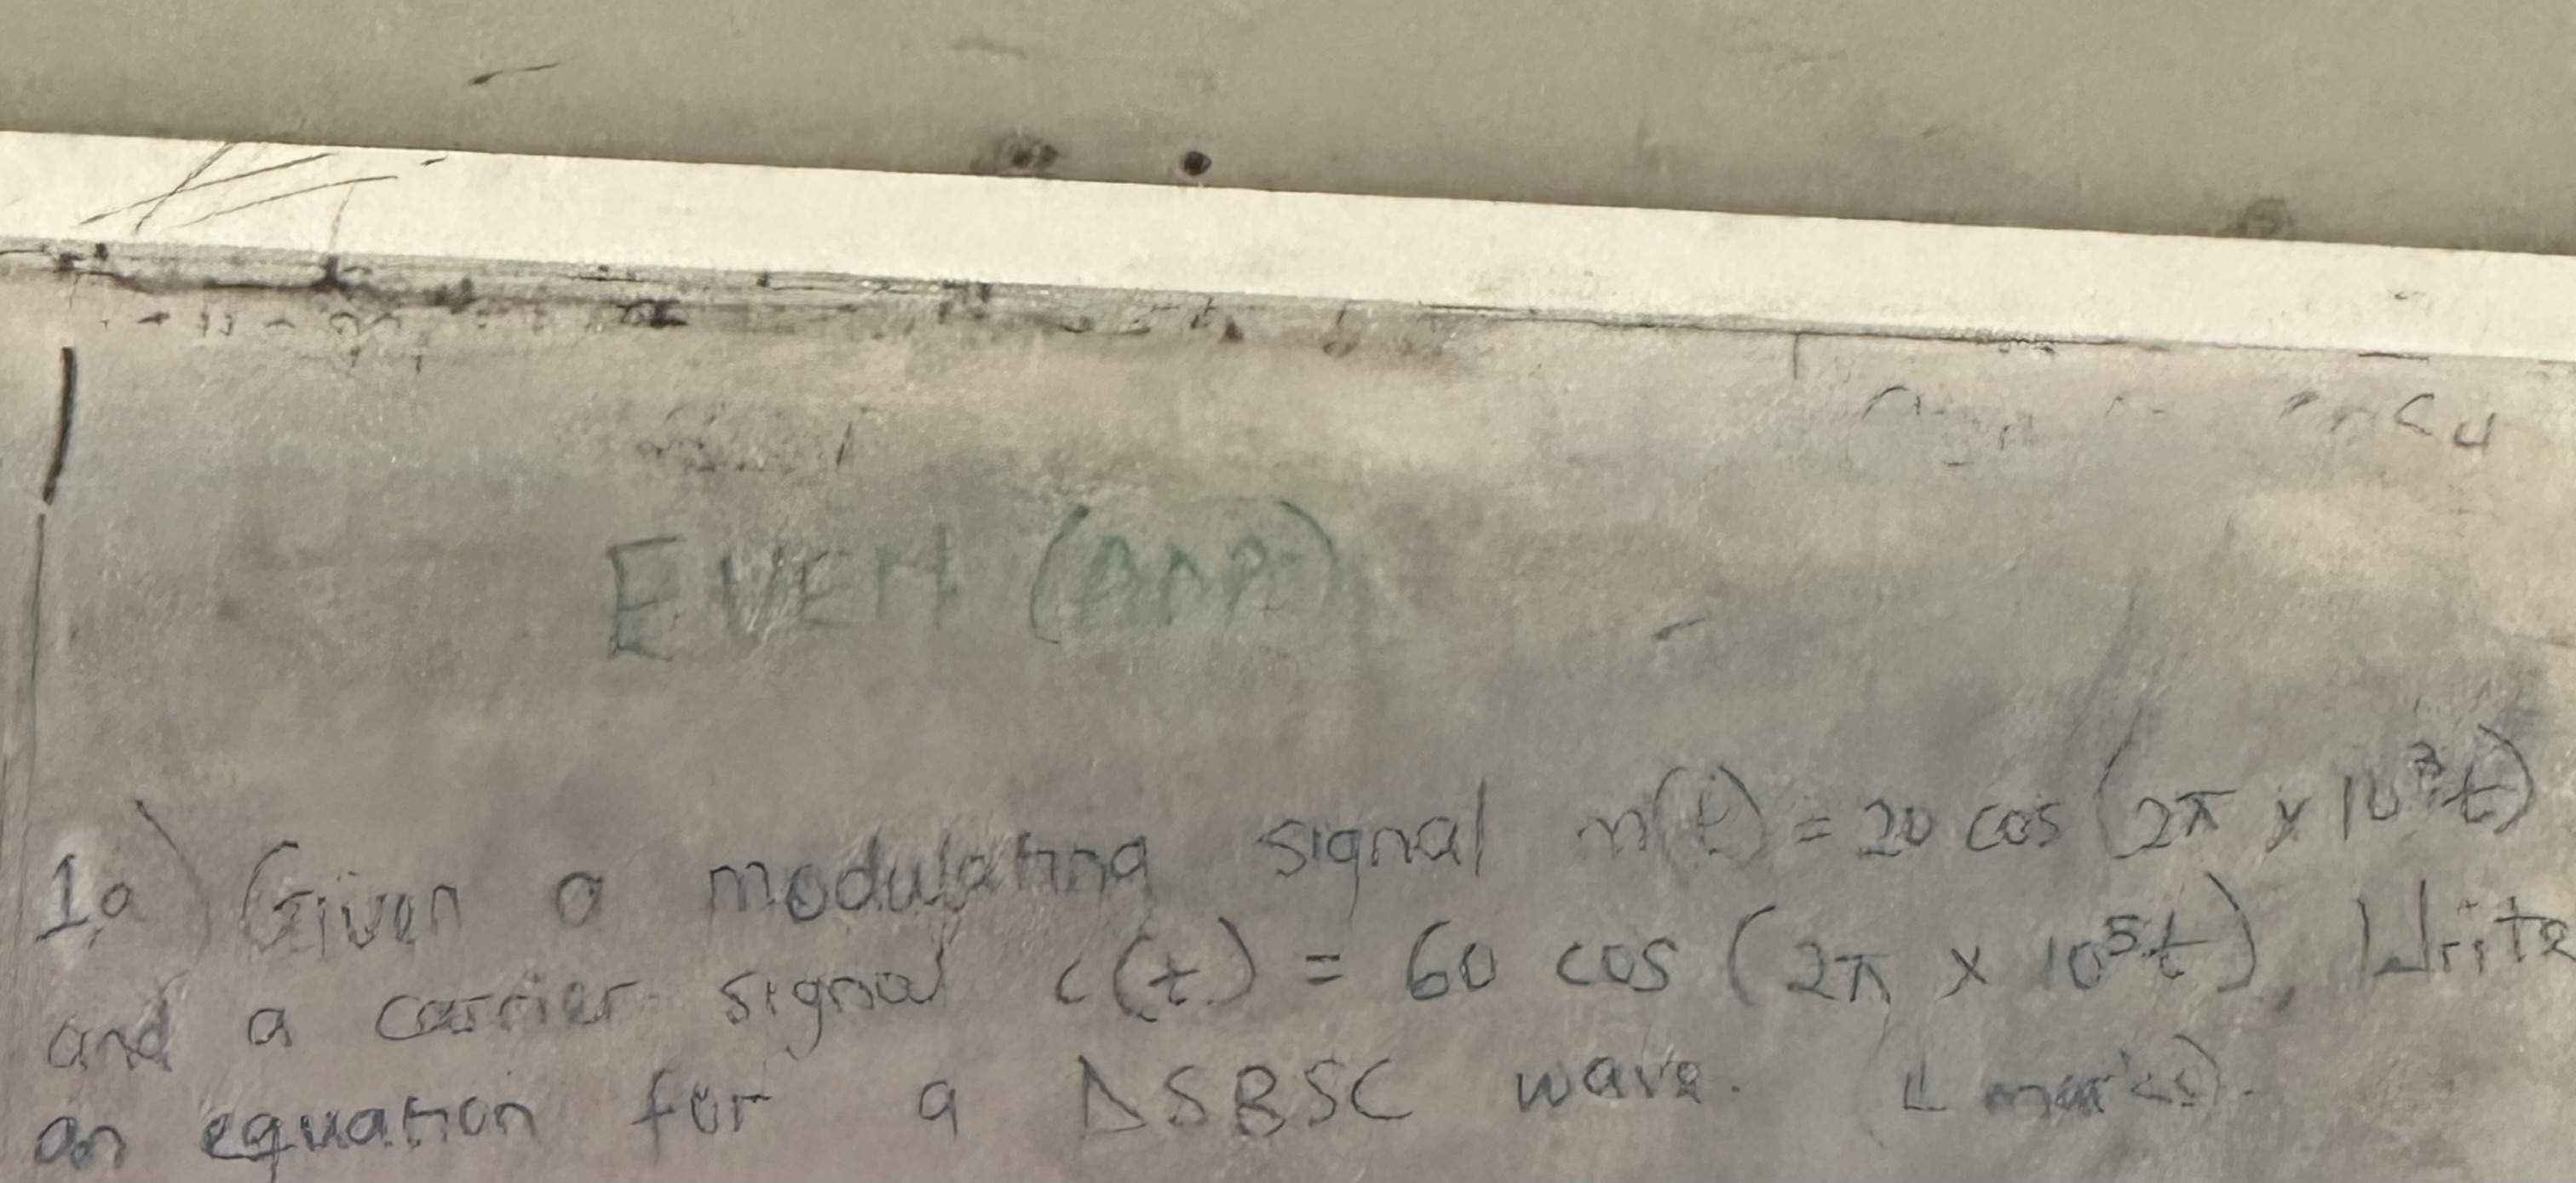 EVEN
1a) Given a modulating signal m(t) = 20 cos (2π x 10³t)
and a carrier signal c(t) = 60 cos (2π x 10⁵t). Write
an equation for a DSBSC wave. (4 marks).